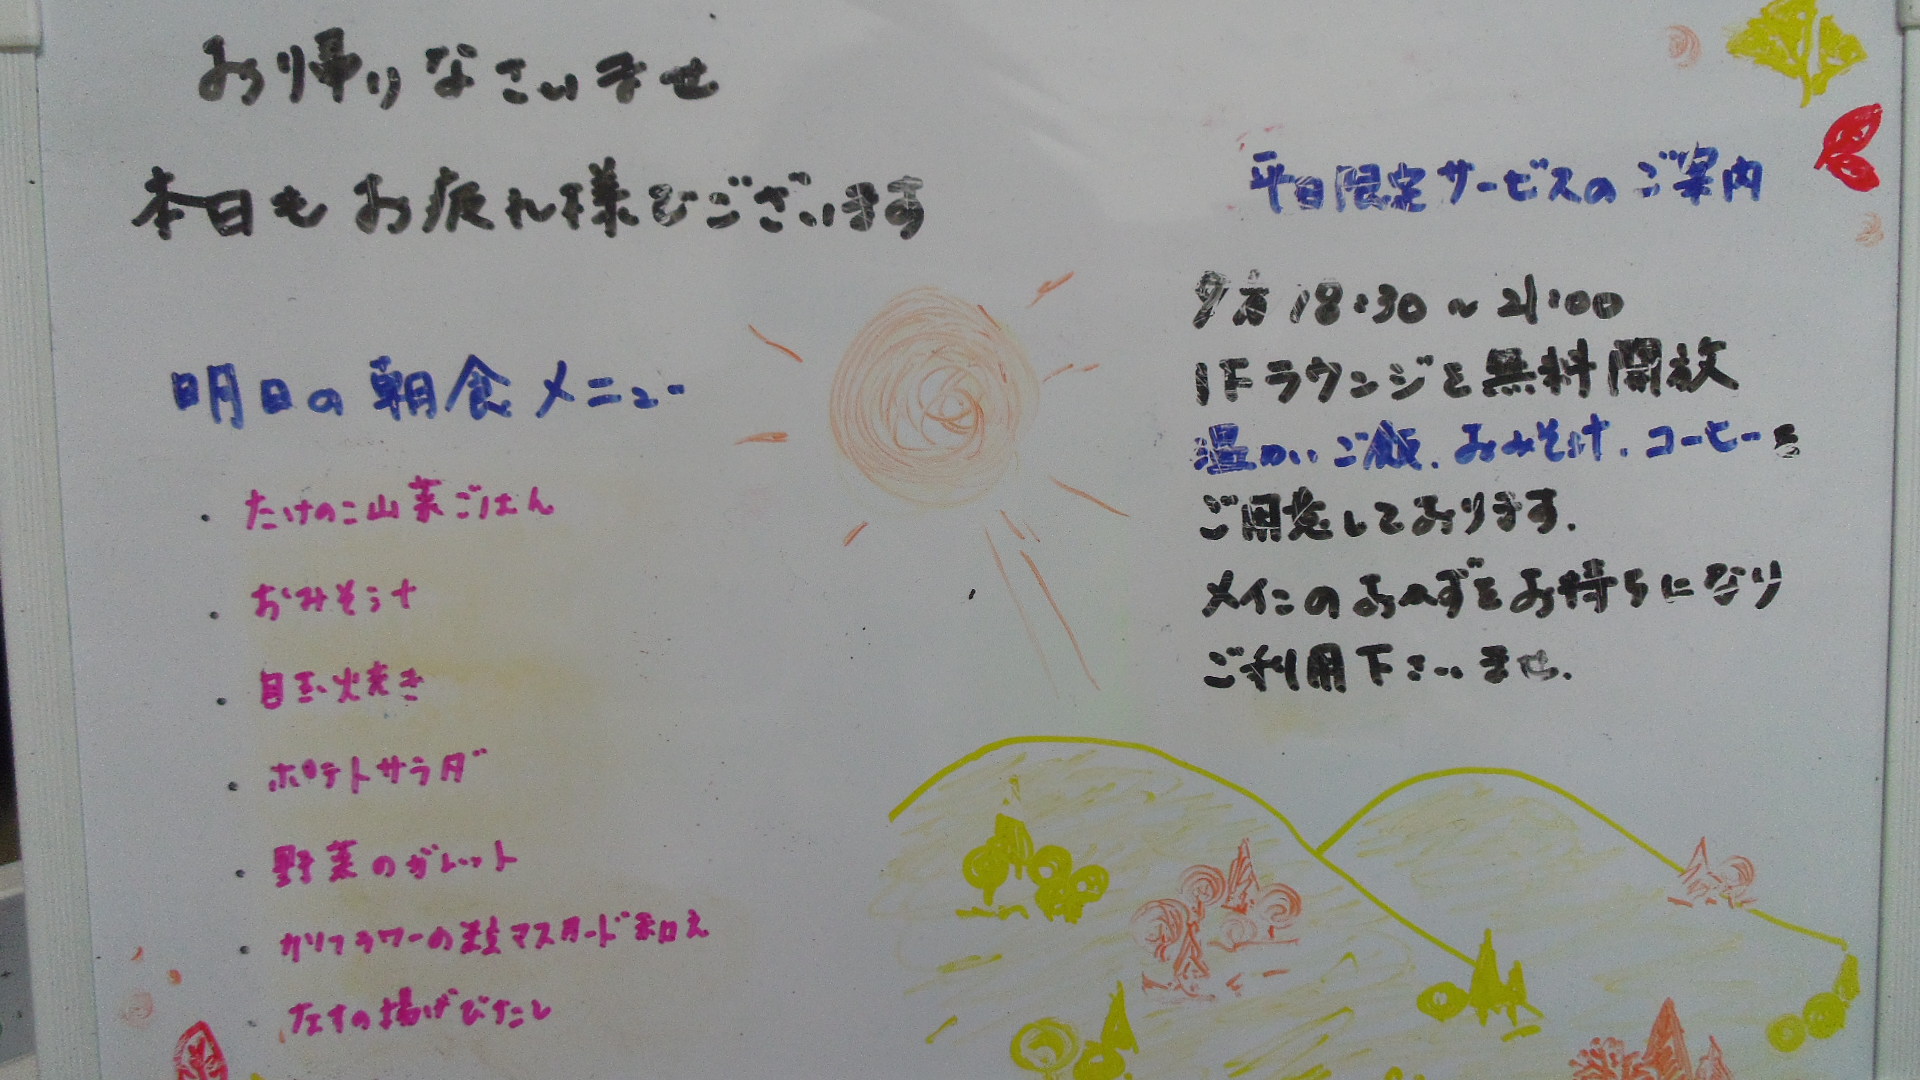 お帰りなさいませ
本日もお疲れ様でございます
明日の朝食メニュー
・たけのこ山菜ごはん
・おみそ汁
・目玉焼き
・ポテトサラダ
・野菜のガレット
・カリフラワーの粒マスタード和え
・なすの揚げびたし
平日限定サービスのご案内
夕方18:30〜21:00
1Fラウンジを無料開放
温かいご飯、おみそ汁、コーヒーを
ご用意しております。
メインのおかずをお持ちになり
ご利用下さいませ。